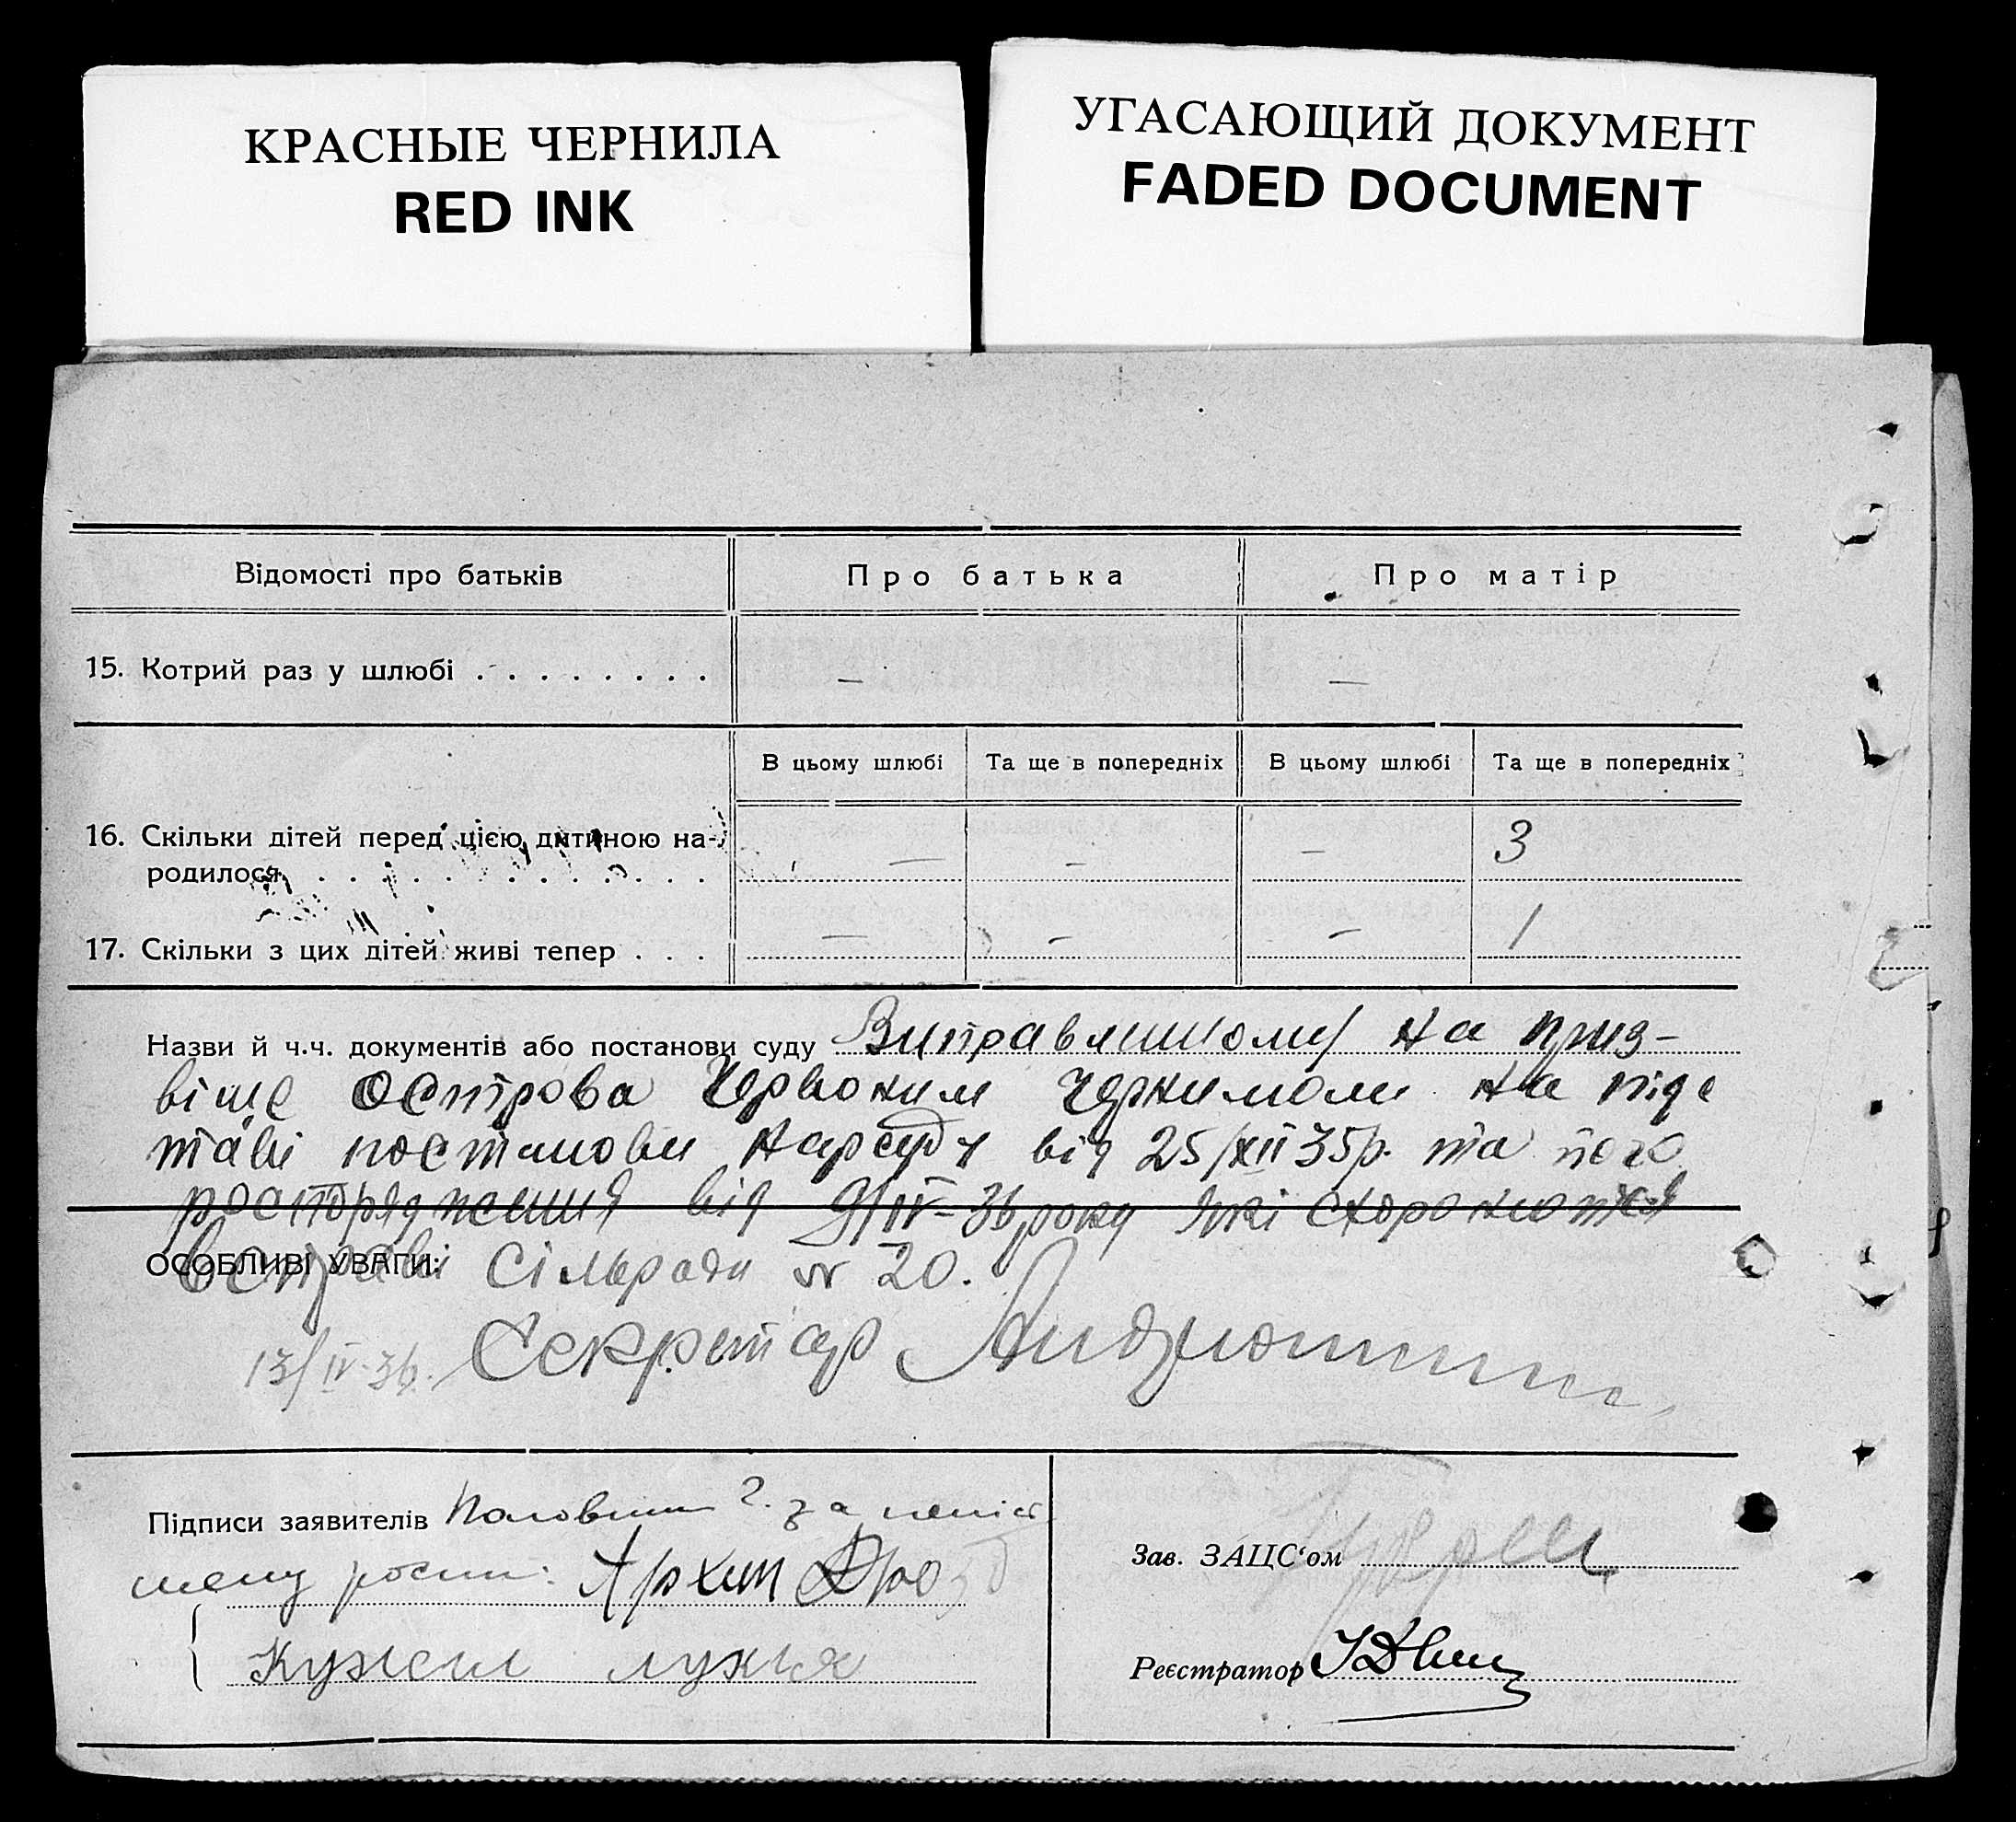 КРАСНЫЕ ЧЕРНИЛА
RED INK
УГАСАЮЩИЙ ДОКУМЕНТ
FADED DOCUMENT
Відомості про батьків Про батька Про матір
15. Котрий раз у шлюбі . . . . . . . . — —
В цьому шлюбі Та ще в попередніх В цьому шлюбі Та ще в попередніх
16. Скільки дітей перед цією дитиною на-
родилося . . . . . . . . . . . . . — — — 3
17. Скільки з цих дітей живі тепер . . . — — — 1
Назви й ч.ч. документів або постанови суду на приз-
віще Острова Червоним Чернилом на підс
таві постанови Нарсуду від 25/XII 35р. та його
роспорядження від 9/IV-36 року які схоронются
в справі Сільради № 20.
ОСОБЛИВІ УВАГИ:
13/IV-36. Секретар
Підписи заявителів за непісь
мену роспис: Архип
Кужел
Зав. ЗАЦС‘ом
Реєстратор